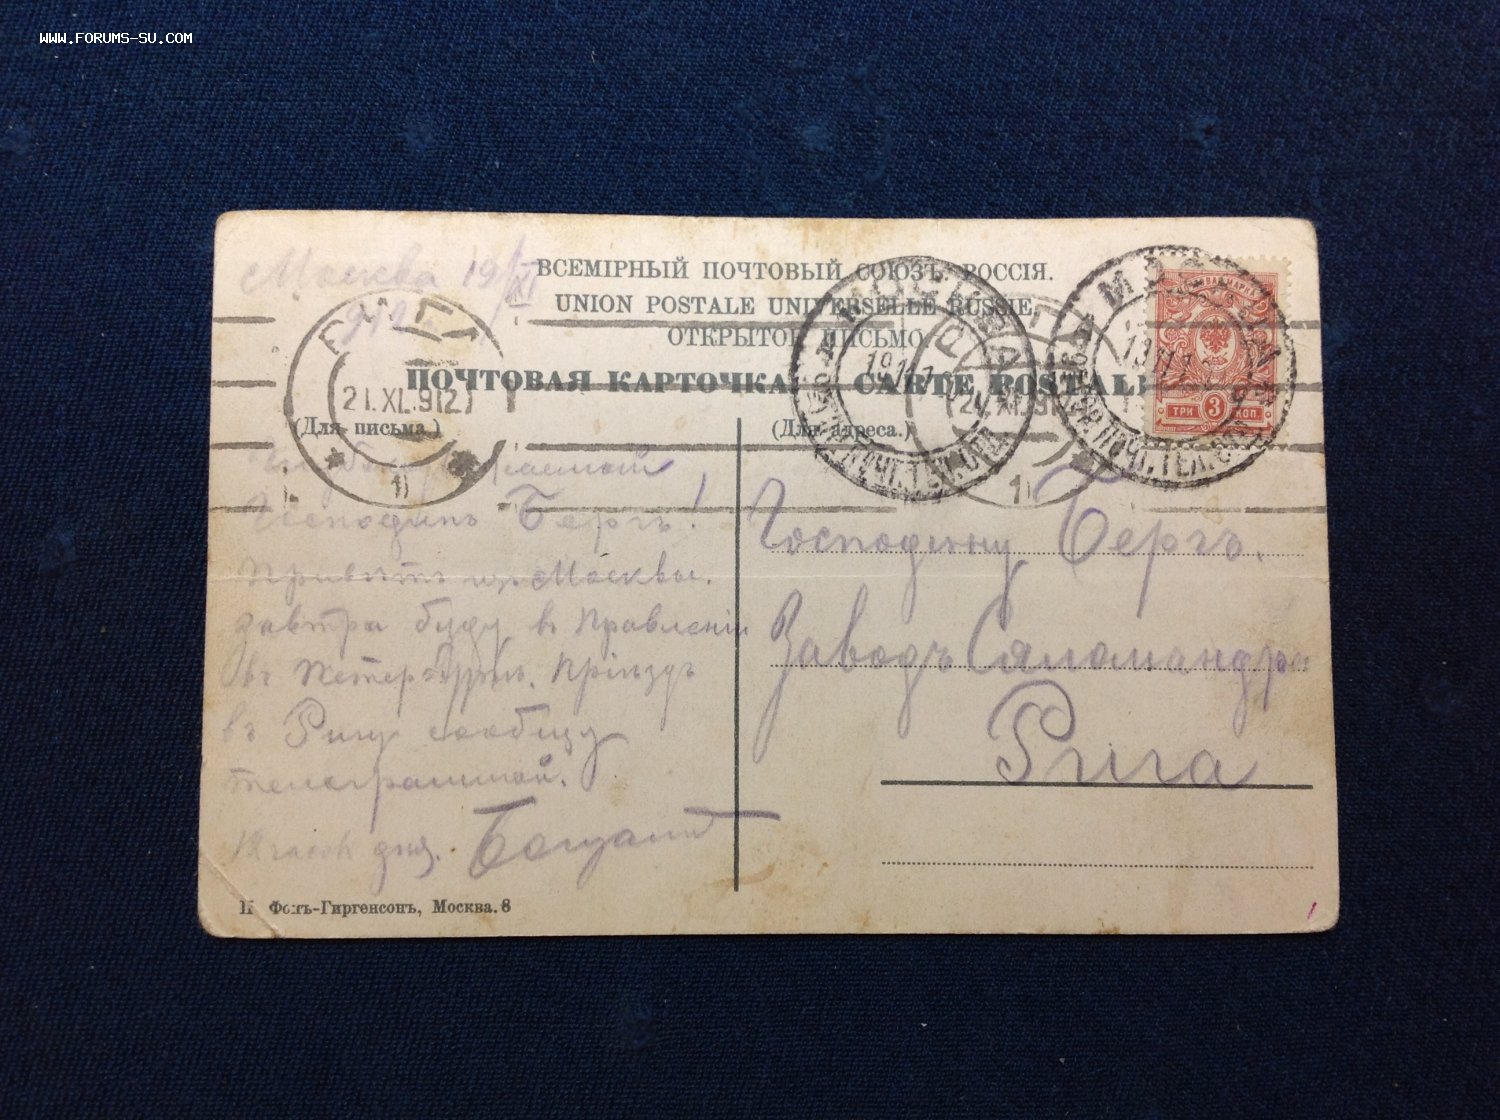 WWW.FORUMS-SU.COM
Москва 19/XI
912
ВСЕМІРНЫЙ ПОЧТОВЫЙ СОЮЗЪ. РОССІЯ.
UNION POSTALE UNIVERSELLE RUSSIE.
ОТКРЫТОЕ ПИСЬМО
ПОЧТОВАЯ КАРТОЧКА CARTE POSTALE
РИГА
21.XI.912
1
МОСКВА
19.11.12
ПОЧТ.ТЕЛ.ОТД.
РИГА
21.XI.91
1
МОСКВА
19.11.1
ПОЧТ.ТЕЛ.
ТРИ 3 КОП.
(Для письма.)
(Для адреса.)
Господинъ Бергъ!
Привѣтъ изъ Москвы.
Завтра буду въ Правленіи
въ Петербургѣ. Пріѣздъ
въ Ригу сообщу
телеграммой.
12 часовъ дня.
Господину Бергъ.
Заводъ Саламандра
Рига
Фонъ-Гиргенсонъ, Москва. 8